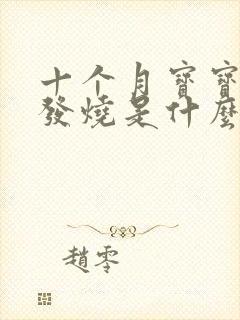 十个月寶寶
發燒是什麼
趙零